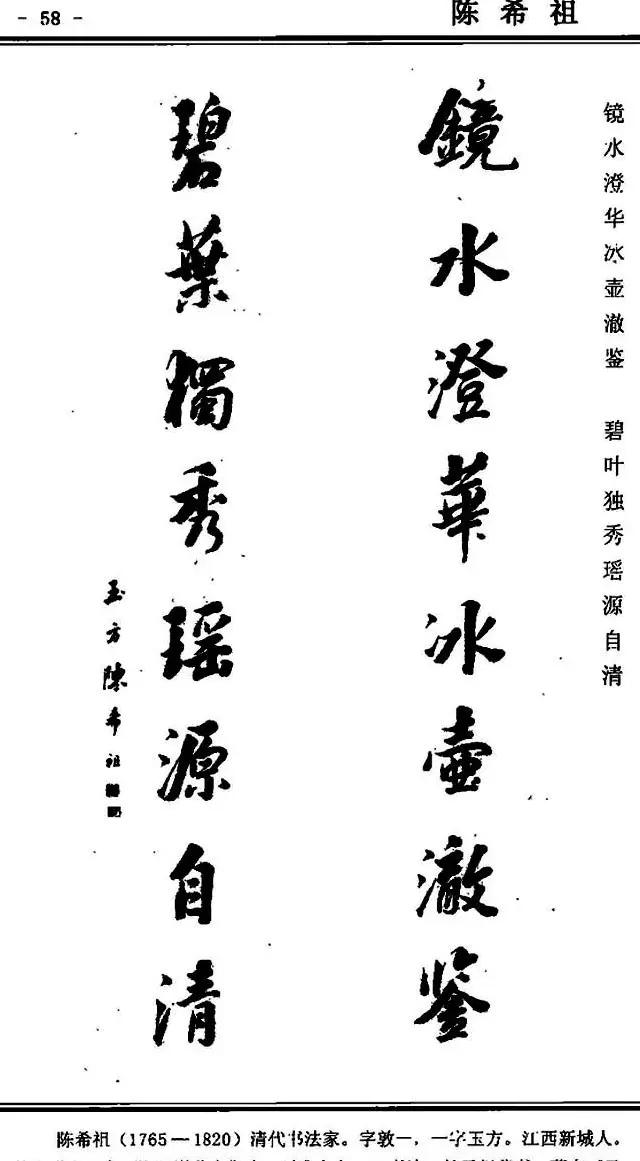 - 58 -
陈希祖
镜水澄华冰壶澈鉴 碧叶独秀瑶源自清
鏡水澄華冰壺澈鑒
碧葉獨秀瑶源自清
玉方陳希祖
陈希祖（1765－1820）清代书法家。字敦一，一字玉方。江西新城人。